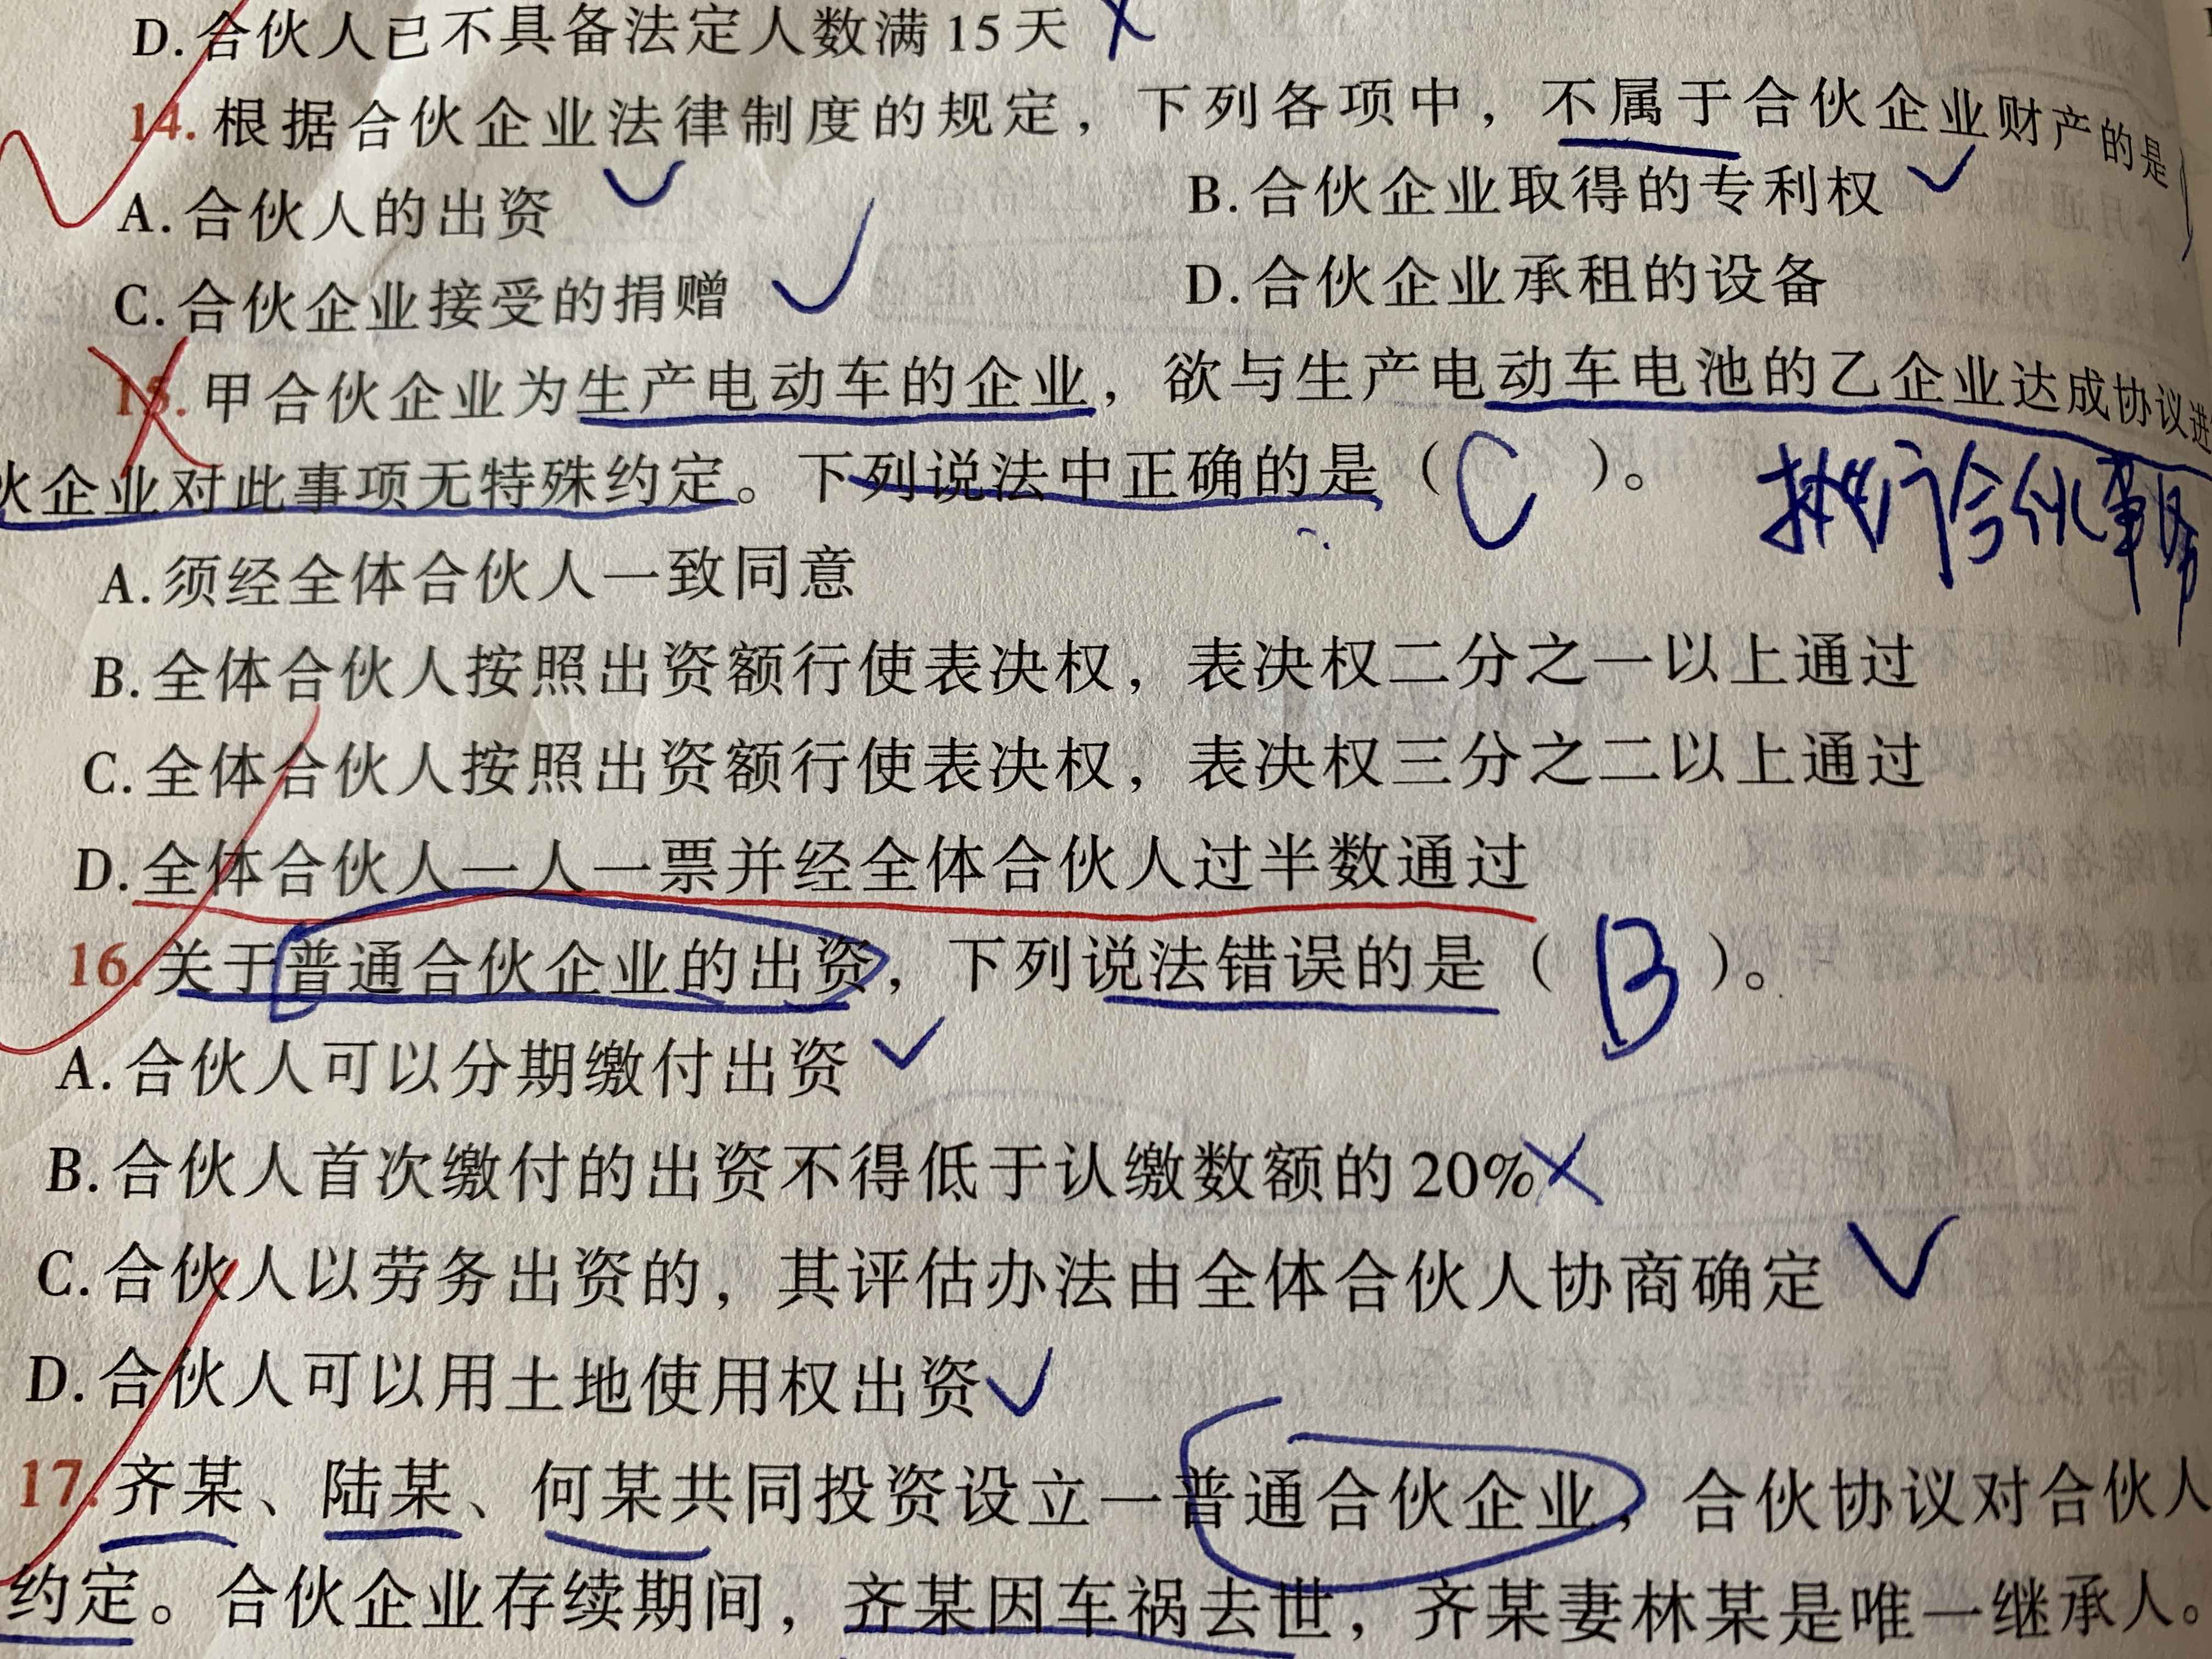 D.合伙人已不具备法定人数满15天
14.根据合伙企业法律制度的规定，下列各项中，不属于合伙企业财产的是
A.合伙人的出资
B.合伙企业取得的专利权
C.合伙企业接受的捐赠
D.合伙企业承租的设备
15.甲合伙企业为生产电动车的企业，欲与生产电动车电池的乙企业达成协议进
伙企业对此事项无特殊约定。下列说法中正确的是（C）。
合伙事务
A.须经全体合伙人一致同意
B.全体合伙人按照出资额行使表决权，表决权二分之一以上通过
C.全体合伙人按照出资额行使表决权，表决权三分之二以上通过
D.全体合伙人一人一票并经全体合伙人过半数通过
16.关于普通合伙企业的出资，下列说法错误的是（B）。
A.合伙人可以分期缴付出资
B.合伙人首次缴付的出资不得低于认缴数额的20%
C.合伙人以劳务出资的，其评估办法由全体合伙人协商确定
D.合伙人可以用土地使用权出资
17.齐某、陆某、何某共同投资设立一普通合伙企业，合伙协议对合伙人
约定。合伙企业存续期间，齐某因车祸去世，齐某妻林某是唯一继承人。